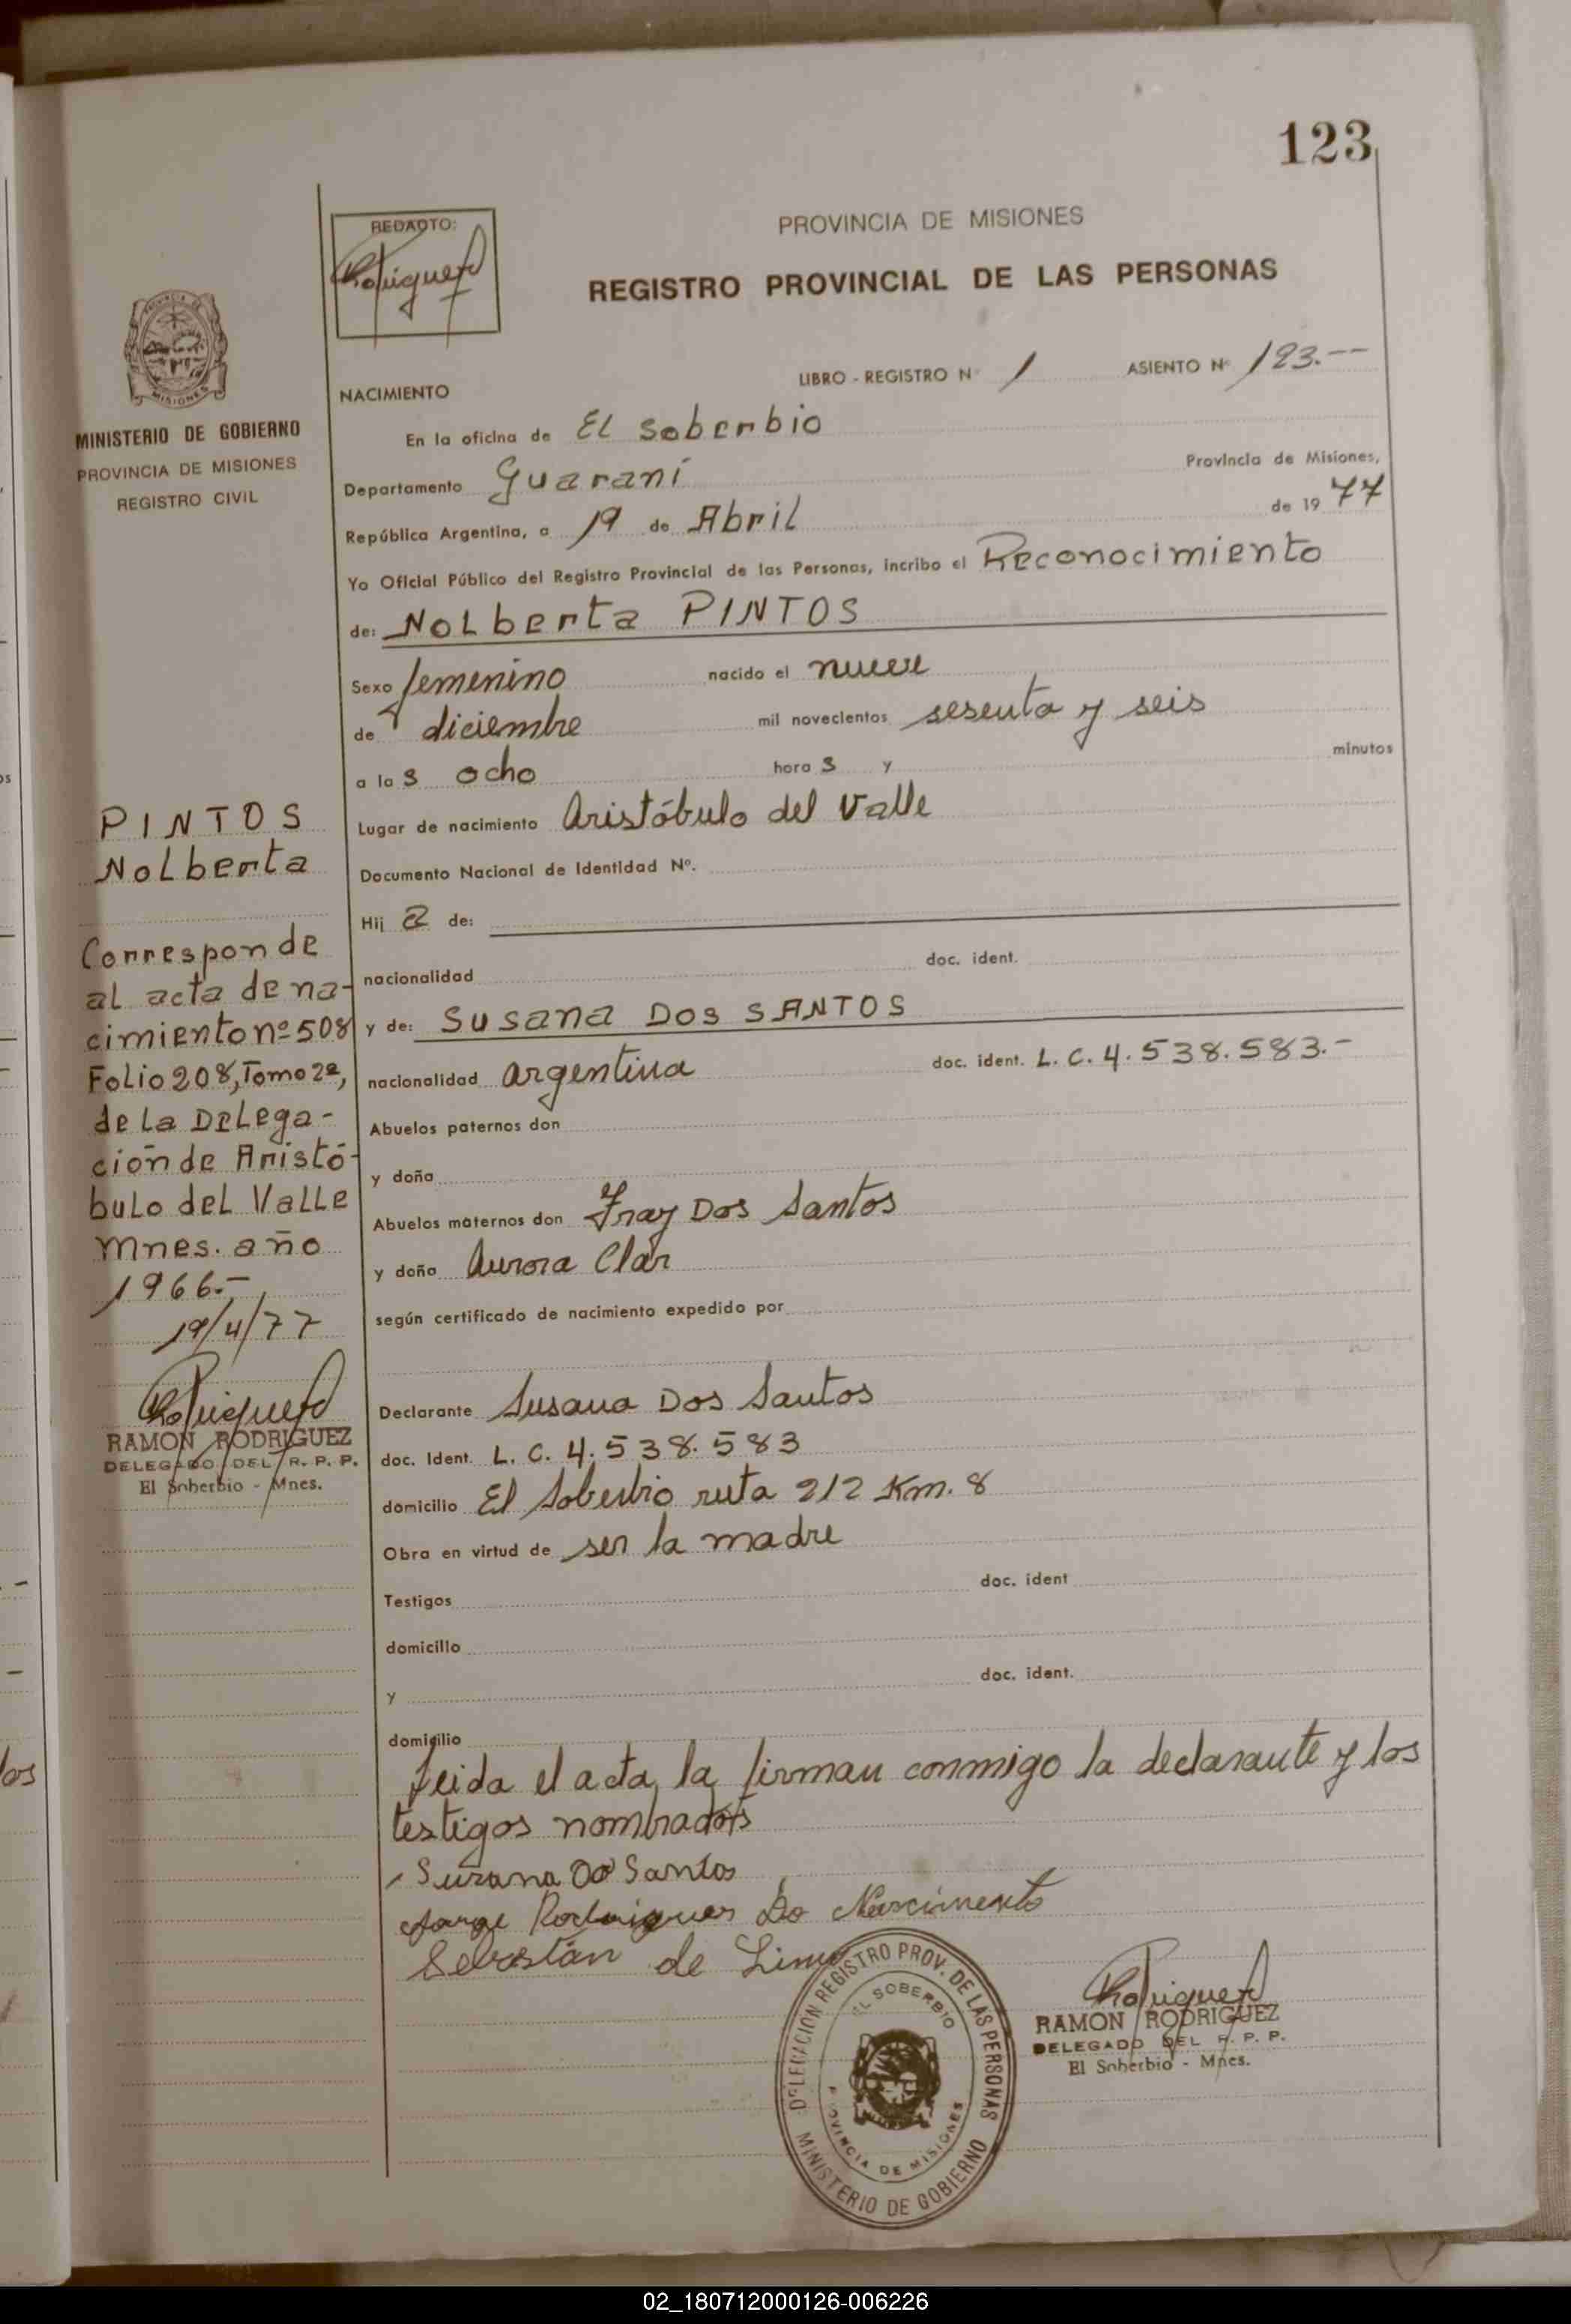 123
REDACTO:
PROVINCIA DE MISIONES
REGISTRO PROVINCIAL DE LAS PERSONAS
MISIONES
MINISTERIO DE GOBIERNO
PROVINCIA DE MISIONES
REGISTRO CIVIL
NACIMIENTO LIBRO - REGISTRO Nº 1 ASIENTO Nº 123.--
En la oficina de El Soberbio
Departamento Guaraní Provincia de Misiones,
República Argentina, a 19 de Abril de 1977
Yo Oficial Público del Registro Provincial de las Personas, incribo el Reconocimiento
de: Nolberta PINTOS
Sexo femenino nacido el nueve
de diciembre mil novecientos sesenta y seis
a las ocho horas y minutos
Lugar de nacimiento Aristóbulo del Valle
Documento Nacional de Identidad Nº.
Hija de:
nacionalidad doc. ident.
y de: Susana DOS SANTOS
nacionalidad argentina doc. ident. L. C. 4.538.583.-
Abuelos paternos don
y doña
Abuelos maternos don Fray Dos Santos
y doña Aurora Clar
según certificado de nacimiento expedido por
Declarante Susana Dos Santos
doc. Ident. L. C. 4.538.583
domicilio El Soberbio ruta 212 Km. 8
Obra en virtud de ser la madre
Testigos doc. ident
domicilio
y doc. ident.
domicilio
Leida el acta, la firman conmigo la declarante y los
testigos nombrados
Suzana Do Santos
Jorge Rodrigues Do Nascimento
Sebastián de Lima
PINTOS
Nolberta
Corresponde
al acta de na-
cimiento nº 508
Folio 208, Tomo 2º,
de la Delega-
ción de Aristó-
bulo del Valle
Mnes. año
1966.-
19/4/77
Rodriguez
RAMON RODRIGUEZ
DELEGADO DEL R. P. P.
El Soberbio - Mnes.
DELEGACION REGISTRO PROV. DE LAS PERSONAS
EL SOBERBIO
PROVINCIA DE MISIONES
MINISTERIO DE GOBIERNO
Rodriguez
RAMON RODRIGUEZ
DELEGADO DEL R. P. P.
El Soberbio - Mnes.
los
02_180712000126-006226